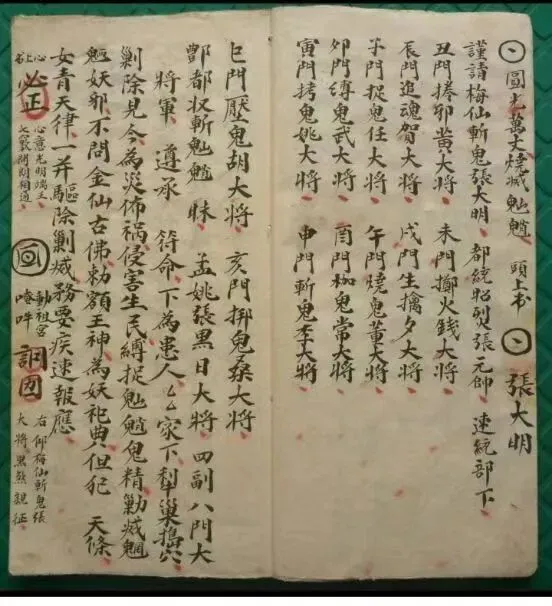 圓光萬丈燒滅魈 頭上書 張大明
謹請梅仙斬鬼張大明 都統昭烈張元帥 速統部下
丑門捧邪黄大將 未門擲火錢大將
辰門追魂賀大將 戌門生擒夕大將
子門捉鬼任大將 午門燒鬼董大將
卯門縛鬼武大將 酉門枷鬼常大將
寅門拷鬼姚大將 申門斬鬼李大將
巳門壓鬼胡大將 亥門鬼桒大將
酆都收斬魈 昧 孟姚張黑日大將 四副八門大
將軍 遵承 符命下為患人厶厶家下犁巢搗穴
剿除見今為災佈禍侵害生民縛捉魈鬼精勦滅
魅妖邪不問金仙古佛勅額王神為妖祀典但犯 天條
女青天律一并驅除剿滅務要疾速報應
心上名
必正
心意光明端正
七竅開則相通
動祖宮
右仰梅仙斬鬼張
大將黑煞親征